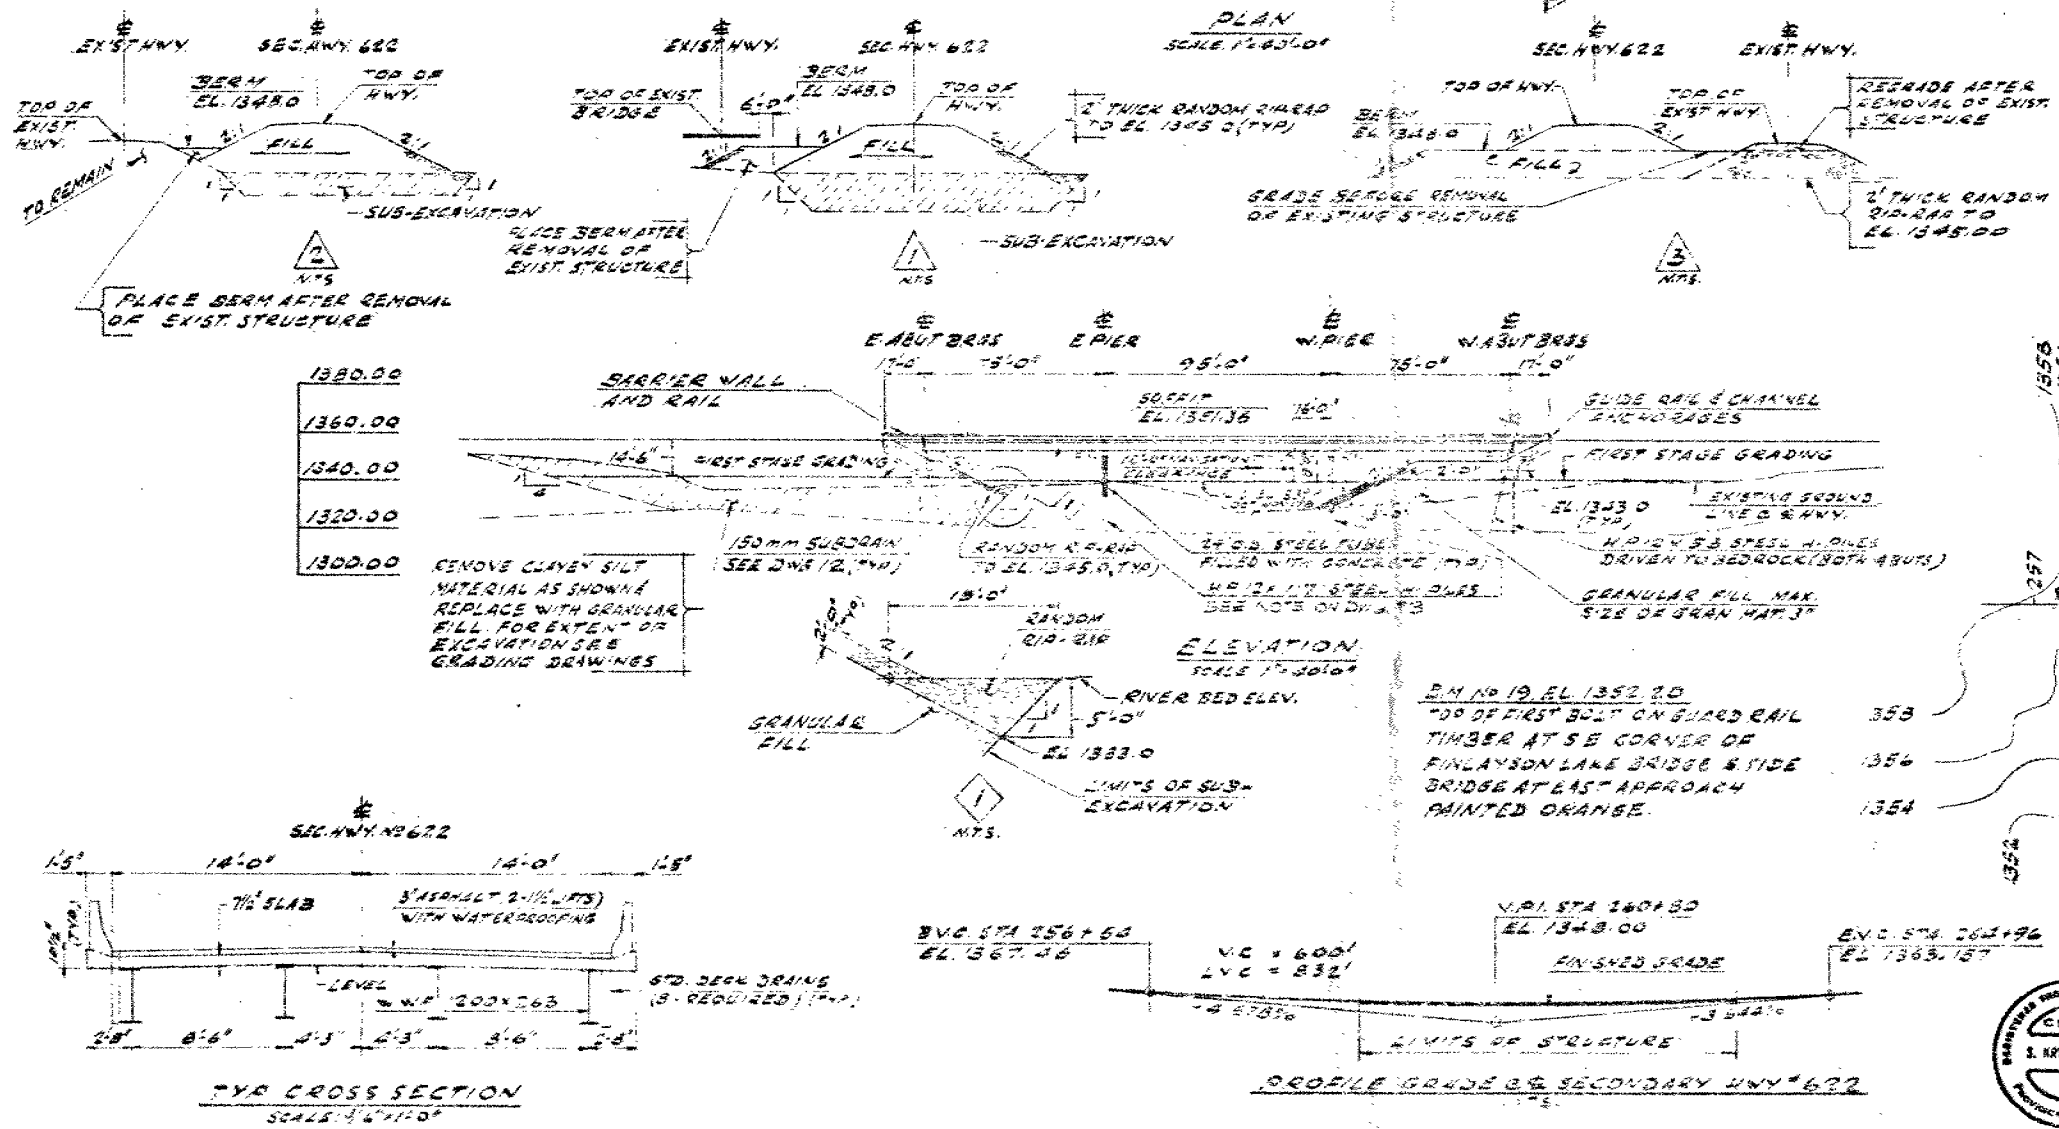 PLAN
SCALE 1"=40'-0"
EXIST HWY.
SEC. HWY. 622
BERM
EL. 1348.0
TOP OF
HWY.
TOP OF
EXIST.
HWY.
2:1
FILL
2:1
TO REMAIN
SUB-EXCAVATION
2
N.T.S.
PLACE BERM AFTER REMOVAL
OF EXIST. STRUCTURE
EXIST. HWY.
SEC. HWY. 622
TOP OF EXIST.
BRIDGE
6'-0"
BERM
EL 1348.0
TOP OF
HWY.
2' THICK RANDOM RIP-RAP
TO EL. 1345.0 (TYP)
2:1
FILL
2:1
PLACE BERM AFTER
REMOVAL OF
EXIST. STRUCTURE
SUB-EXCAVATION
1
N.T.S.
SEC. HWY. 622
EXIST. HWY.
TOP OF HWY.
TOP OF
EXIST HWY.
REGRADE AFTER
REMOVAL OF EXIST.
STRUCTURE
BERM
2:1
2:1
FILL
GRADE BEFORE REMOVAL
OF EXISTING STRUCTURE
2' THICK RANDOM
RIP-RAP TO
EL. 1345.00
3
N.T.S.
E. ABUT BRGS
E. PIER
W. PIER
W. ABUT BRGS
17'-0"
75'-0"
95'-0"
75'-0"
17'-0"
1380.00
1360.00
1340.00
1320.00
1300.00
BARRIER WALL
AND RAIL
SOFFIT
EL. 1351.36
GUIDE RAIL & CHANNEL
ANCHORAGES
14'-6"
FIRST STAGE GRADING
CLEARANCE
2'-0"
FIRST STAGE GRADING
EL. 1343.0
(TYP)
EXISTING GROUND
LINE @ HWY.
150mm SUBDRAIN
SEE DWG 12 (TYP)
RANDOM RIP-RAP
TO EL. 1345.0 (TYP)
24" O.D. STEEL TUBE
FILLED WITH CONCRETE (TYP)
H.P. 12 x 117 STEEL H-PILES
H.P. 12 x 53 STEEL H-PILES
DRIVEN TO BEDROCK (BOTH ABUTS)
REMOVE CLAYEY SILT
MATERIAL AS SHOWN &
REPLACE WITH GRANULAR
FILL. FOR EXTENT OF
EXCAVATION SEE
GRADING DRAWINGS
GRANULAR FILL MAX.
SIZE OF GRAN MAT. 3"
ELEVATION
SCALE 1"=40'-0"
2'-0"
(TYP)
2:1
RANDOM
RIP-RAP
RIVER BED ELEV.
5'-0"
GRANULAR
FILL
EL 1333.0
LIMITS OF SUB-
EXCAVATION
1
N.T.S.
B.M. No 19, EL. 1352.20
TOP OF FIRST BOLT ON GUARD RAIL
TIMBER AT S E CORNER OF
FINLAYSON LAKE BRIDGE E. SIDE
BRIDGE AT EAST APPROACH
PAINTED ORANGE.
1358
257
1356
1354
1352
SEC. HWY. No 622
1'-5"
14'-0"
14'-0"
1'-5"
10½"
(TYP)
7½" SLAB
3" ASPHALT 2-1½" LIFTS)
WITH WATERPROOFING
LEVEL
W.W.F. 1200x263
STD. DECK DRAINS
(8-REQUIRED) (TYP.)
2'-8"
8'-6"
4'-3"
4'-3"
8'-6"
2'-8"
TYP. CROSS SECTION
B.V.C. STA 256+64
EL. 1367.46
V.C = 600'
LVC = 832'
V.P.I. STA 260+80
EL. 1348.00
FINISHED GRADE
E.V.C. STA. 264+96
EL 1363.157
-4.678%
LIMITS OF STRUCTURE
PROFILE GRADE @ SECONDARY HWY #622